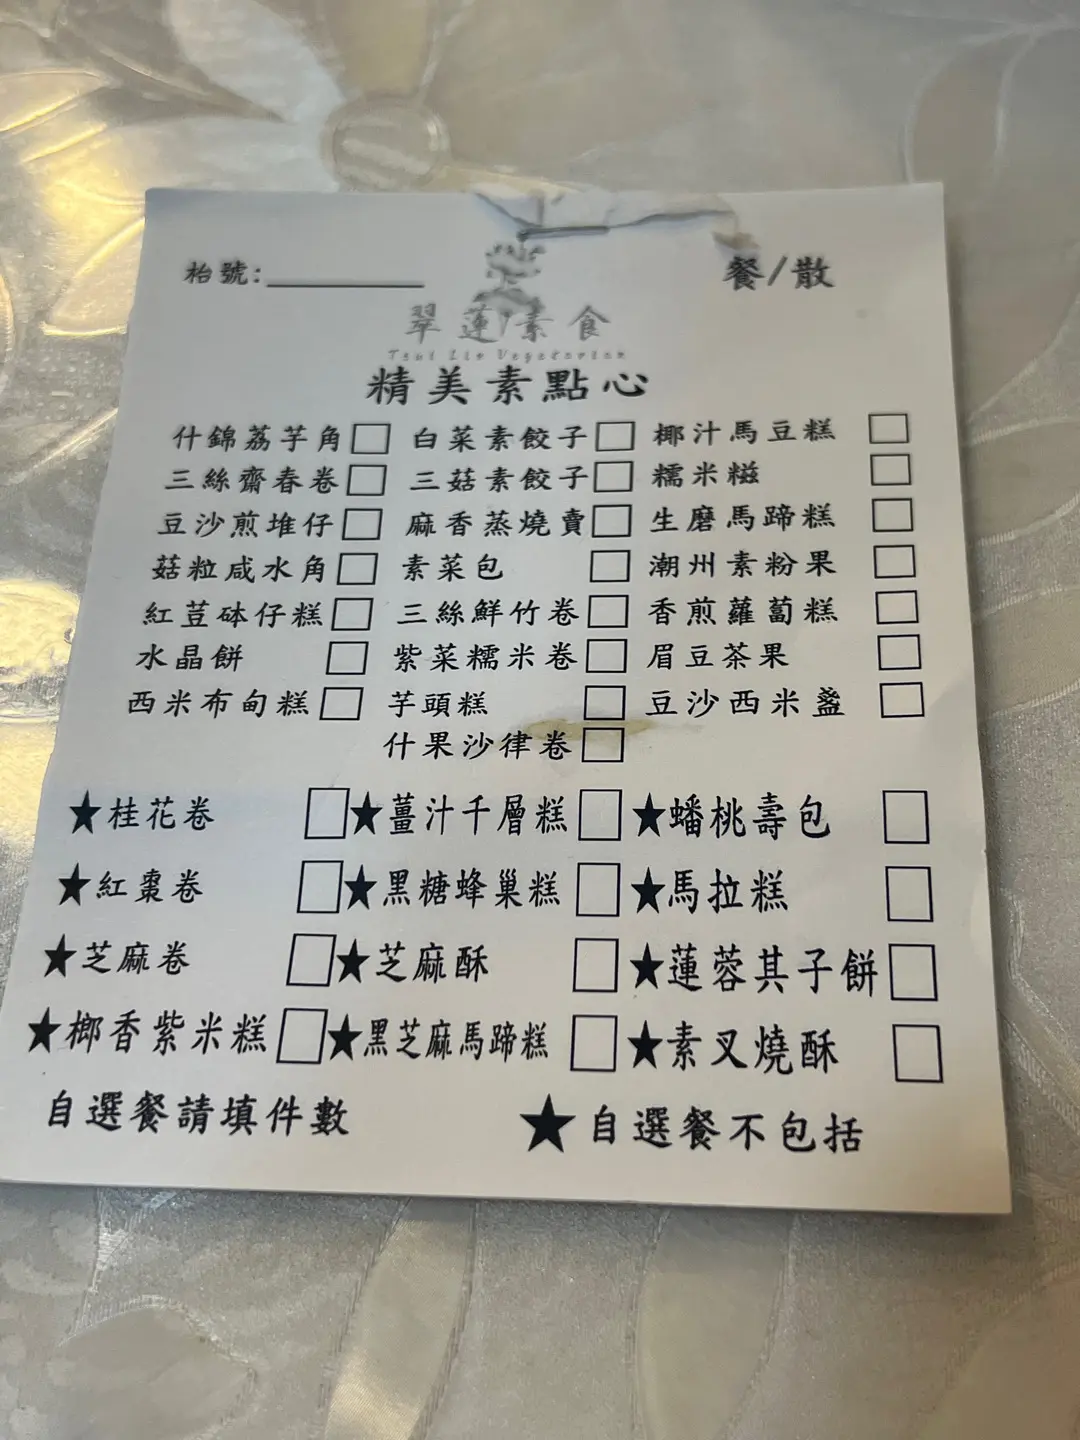 枱號:________ 餐/散
翠蓮素食
Tsui Lin Vegetarian
精美素點心
什錦荔芋角 □ 白菜素餃子 □ 椰汁馬豆糕 □
三絲齋春卷 □ 三菇素餃子 □ 糯米糍 □
豆沙煎堆仔 □ 麻香蒸燒賣 □ 生磨馬蹄糕 □
菇粒咸水角 □ 素菜包 □ 潮州素粉果 □
紅荳砵仔糕 □ 三絲鮮竹卷 □ 香煎蘿蔔糕 □
水晶餅 □ 紫菜糯米卷 □ 眉豆茶果 □
西米布甸糕 □ 芋頭糕 □ 豆沙西米盞 □
什果沙律卷 □
★桂花卷 □ ★薑汁千層糕 □ ★蟠桃壽包 □
★紅棗卷 □ ★黑糖蜂巢糕 □ ★馬拉糕 □
★芝麻卷 □ ★芝麻酥 □ ★蓮蓉其子餅 □
★椰香紫米糕 □ ★黑芝麻馬蹄糕 □ ★素叉燒酥 □
自選餐請填件數 ★自選餐不包括